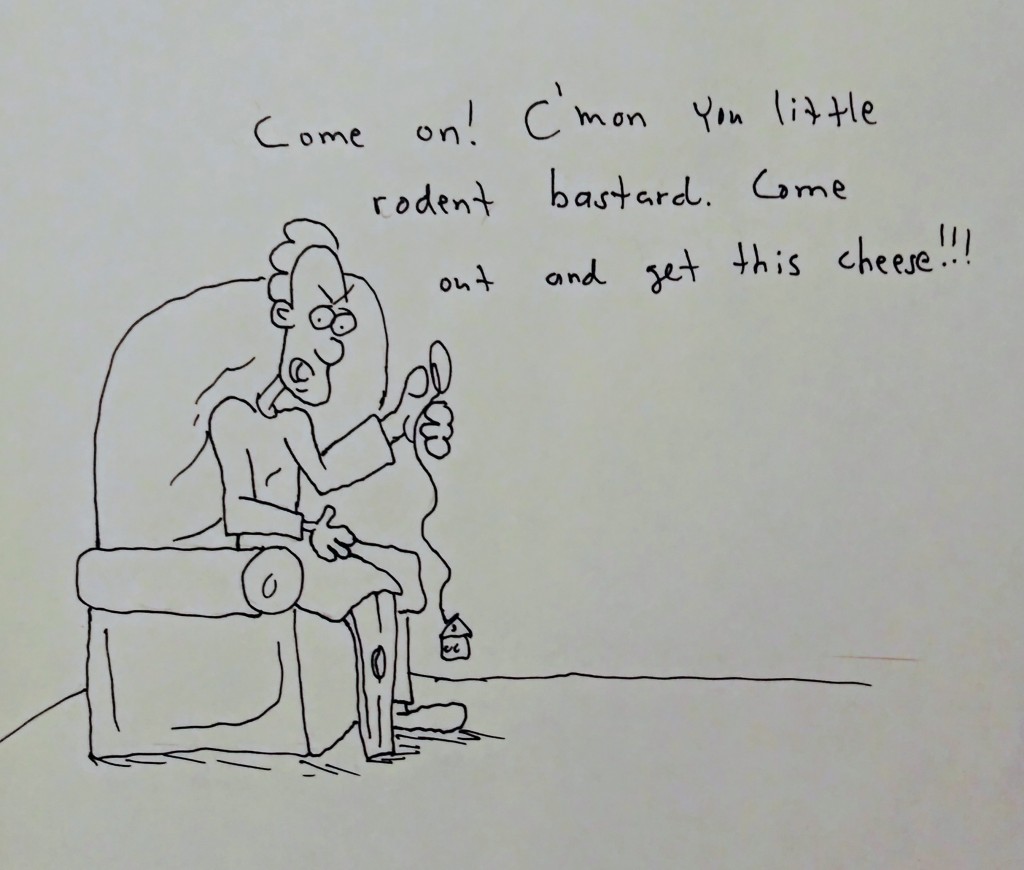 Come on! C'mon you little
rodent bastard. Come
out and get this cheese!!!